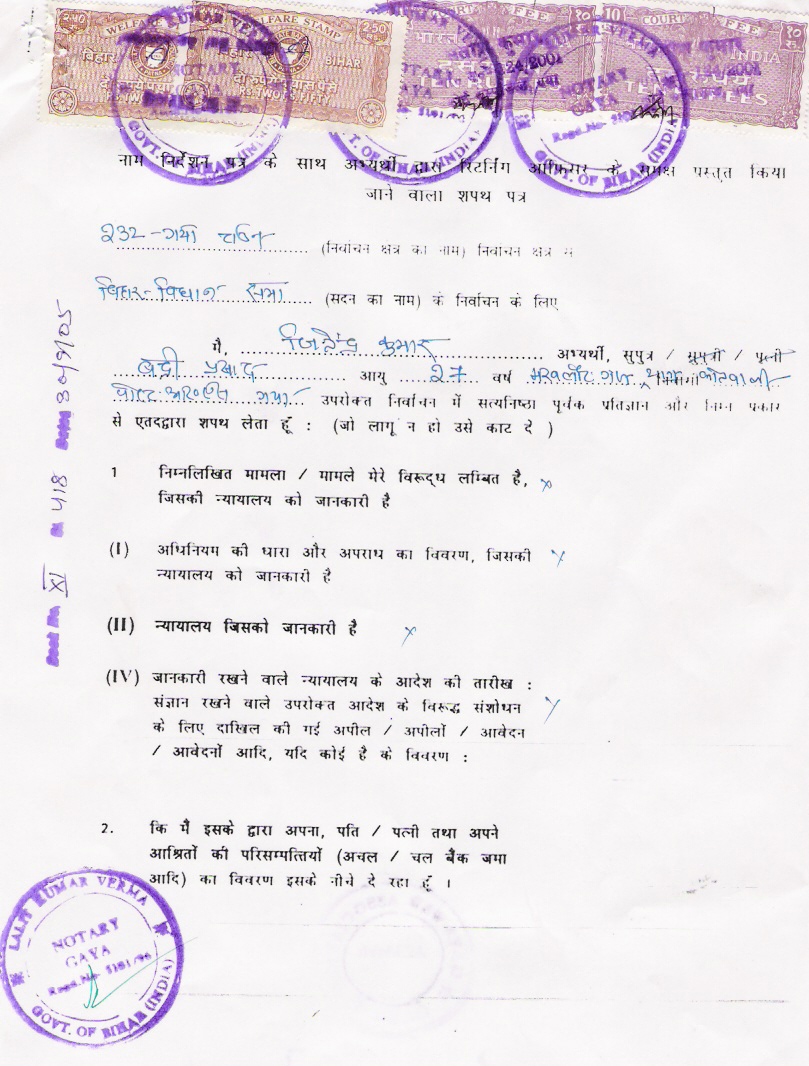 WELFARE STAMP
BIHAR
COURT FEE
INDIA
TEN RUPEES
NOTARY
GAYA
GOVT. OF BIHAR (INDIA)
नाम निर्देशन पत्र के साथ अभ्यर्थी द्वारा रिटर्निंग आफिसर के समक्ष प्रस्तुत किया
जाने वाला शपथ पत्र
232-गया (निर्वाचन क्षेत्र का नाम) निर्वाचन क्षेत्र से
बिहार-विधान सभा (सदन का नाम) के निर्वाचन के लिए
मै, जितेन्द्र कुमार अभ्यर्थी, सुपुत्र / सुपुत्री / पत्नी
बद्री प्रसाद आयु 27 वर्ष
गया उपरोक्त निर्वाचन में सत्यनिष्ठा पूर्वक प्रतिज्ञान और निम्न प्रकार
से एतदद्वारा शपथ लेता हूँ : (जो लागू न हो उसे काट दे )
1 निम्नलिखित मामला / मामले मेरे विरूद्ध लम्बित है, ×
जिसकी न्यायालय को जानकारी है
(I) अधिनियम की धारा और अपराध का विवरण, जिसकी ×
न्यायालय को जानकारी है
(II) न्यायालय जिसको जानकारी है ×
(IV) जानकारी रखने वाले न्यायालय के आदेश की तारीख :
संज्ञान रखने वाले उपरोक्त आदेश के विरूद्ध संशोधन ×
के लिए दाखिल की गई अपील / अपीलों / आवेदन
/ आवेदनों आदि, यदि कोई है के विवरण :
2. कि मैं इसके द्वारा अपना, पति / पत्नी तथा अपने
आश्रितों की परिसम्पत्तियों (अचल / चल बैंक जमा
आदि) का विवरण इसके नीचे दे रहा हूँ ।
Book No. XI 418 30/9/05
LALIT KUMAR VERMA
NOTARY
GAYA
Regd. No- 5101/96
GOVT. OF BIHAR (INDIA)